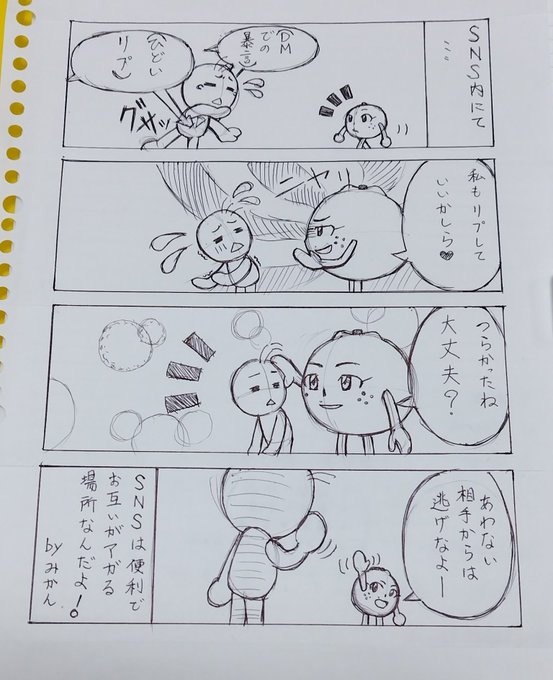 SNS内にて
…
DM
での
暴言
ひどい
リプ
グサッ
私もリプして
いいかしら♥
ニヤリ
つらかったね
大丈夫?
あわない
相手からは
逃げなよー
SNSは便利で
お互いがアガる
場所なんだよ!
byみかん